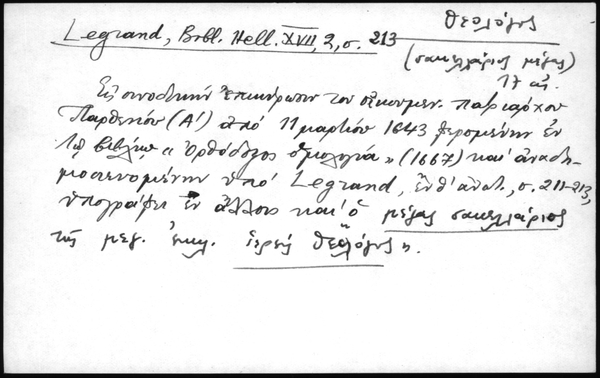 Θεολόγος
Legrand, Bibl. Hell. XVII, 2, σ. 213
(σακελλάριος μέγας)
17 αἰ.
Εἰς συνοδικὴν ἐπικύρωσιν τοῦ οἰκουμεν. πατριάρχου
Παρθενίου (Α΄) ἀπὸ 11 μαρτίου 1643 φερομένην ἐν
τῷ βιβλίῳ « Ὀρθόδοξος ὁμολογία » (1667) καὶ ἀναδη-
μοσιευομένην ὑπὸ Legrand, ἔνθ' ἀνωτ., σ. 211-213,
ὑπογράφει ἐν ἄλλοις καὶ ὁ μέγας σακελλάριος
τῆς μεγ. ἐκκλ. ἱερεὺς Θεολόγος ».